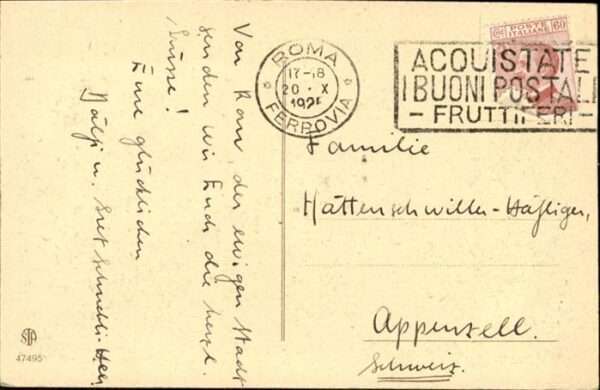 Von Rom, der ewigen Stadt
senden wir Euch die herzl.
Grüsse!
Eure glücklichen
u.
POSTE
ITALIANE
60
ROMA
17-18
20 · X
FERROVIA
ACQUISTATE
I BUONI POSTALI
- FRUTTIFERI -
Familie
Hättenschwiller-Häfliger,
Appenzell.
Schweiz.
STA
47495